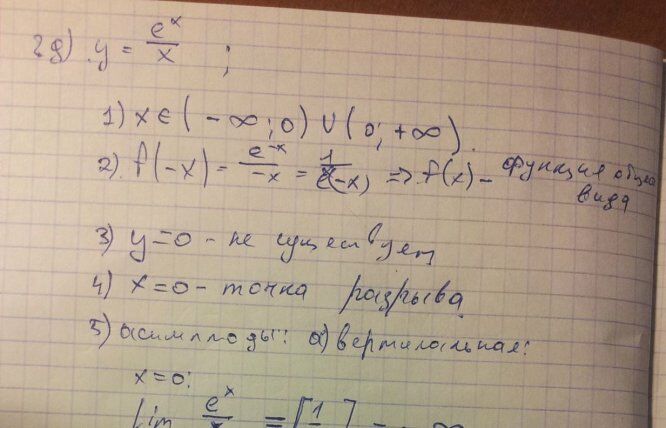 2д) y = e^x / x ;
1) x ∈ (-∞; 0) ∪ (0; +∞).
2) f(-x) = e^-x / -x = 1 / e^x(-x) => f(x) - функция общего вида
3) y=0 - не существует
4) x=0 - точка разрыва
5) асимптоды: а) вертикальная:
x=0:
lim e^x / x = [1